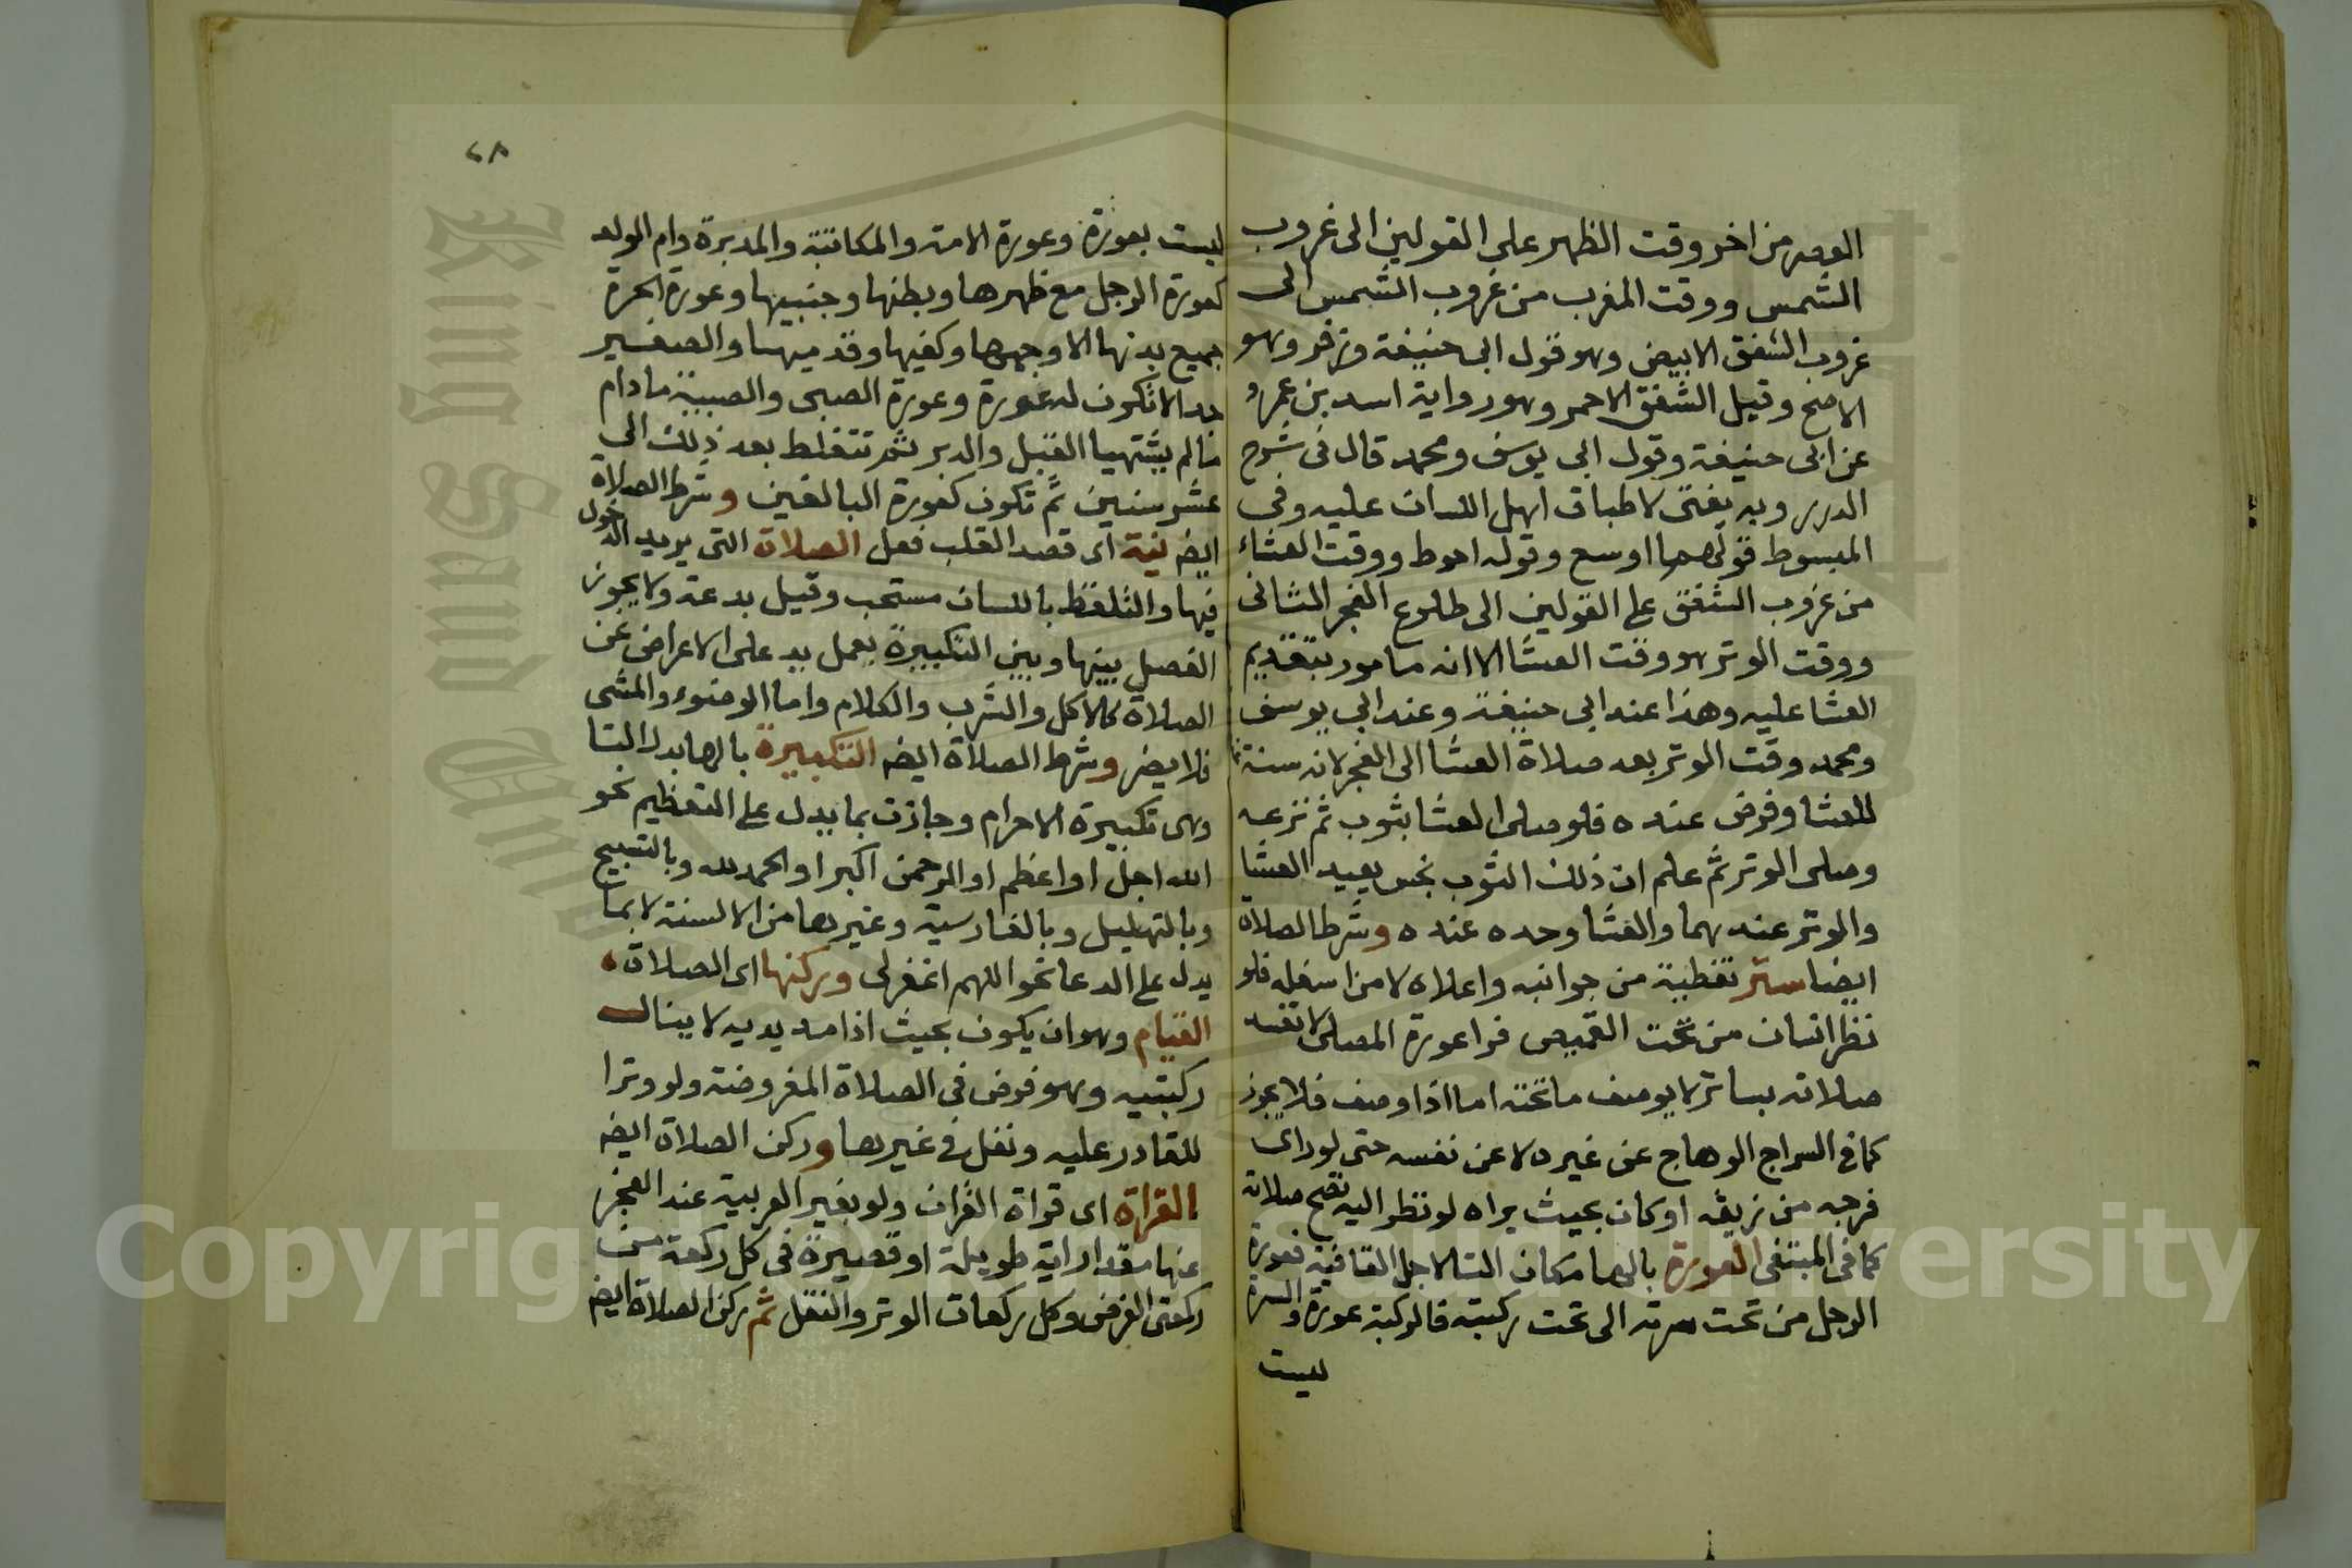 العصر من اخر وقت الظهر على القولين الى غروب
الشمس ووقت المغرب من غروب الشمس الى
غروب الشفق الابيض وهو قول ابى حنيفة وزفر وهو
الاصح وقيل الشفق الاحمر وهو رواية اسد بن عمرو
عن ابى حنيفة وقول ابى يوسف ومحمد قال فى شرح
الدرر وبه يفتى لاطباق اهل اللسان عليه وفى
المبسوط قولهما اوسع وقوله احوط ووقت العشاء
من غروب الشفق على القولين الى طلوع الفجر الثانى
ووقت الوتر هو وقت العشا الا انه مامور بتقديم
العشا عليه وهذا عند ابى حنيفة وعند ابى يوسف
ومحمد وقت الوتر بعد صلاة العشا الى الفجر لانه سنة
للعشا وفرض عنده فلو صلى العشا بثوب ثم نزعه
وصلى الوتر ثم علم ان ذلك الثوب نجس يعيد العشا
والوتر عندهما والعشا وحده عنده وشرط الصلاة
ايضا ستر تغطية من جوانبه واعلاه لا من اسفله فلو
نظر انسان من تحت القميص فراعورة المصلى لا تفسد
صلاته بساتر لا يوصف ما تحته اما اذا وصف فلا يجوز
كما فى السراج الوهاج عن غيره لا عن نفسه حتى لو راى
فرجه من زيقه او كان بحيث يراه لو نظر اليه تصح صلاته
كما فى المبتغى العورة بالها مكان التا لاجل القافية فعورة
الرجل من تحت سرته الى تحت ركبته فالركبة عورة والسرة
ليست
٢٨
ليست بعورة وعورة الامة والمكاتبة والمدبرة وام الولد
كعورة الرجل مع ظهرها وبطنها وجنبيها وعورة الحرة
جميع بدنها الا وجهها وكفيها وقدميها والصغير
جدا لا تكون له عورة وعورة الصبى والصبية ما دام
ما لم يشتهيا القبل والدبر ثم تتغلظ بعد ذلك الى
عشر سنين ثم تكون كعورة البالغين وشرط الصلاة
ايضه نية اى قصد القلب فعل الصلاة التى يريد الدخول
فيها والتلفظ باللسان مستحب وقيل بدعة ولا يجوز
الفصل بينها وبين التكبيرة بعمل يد على الاعراض عن
الصلاة كالاكل والشرب والكلام واما الوضوء والمشى
فلا يضر وشرط الصلاة ايضه التكبيرة بالها بدل التا
وهى تكبيرة الاحرام وجازت بما يدل على التعظيم نحو
الله اجل او اعظم او الرحمن اكبر او الحمد لله وبالتسبيح
وبالتهليل وبالفارسية وغيرها من الالسنة لا بما
يدل على الدعا نحو اللهم اغفر لى وركنها اى الصلاة
القيام وهو ان يكون بحيث اذا مد يديه لا ينال
ركبتيه وهو فرض فى الصلاة المفروضة ولو وترا
للقادر عليه ونفل فى غيرها وركن الصلاة ايضه
القراة اى قراة القران ولو بغير العربية عند العجز
عنها مقدار اية طويلة او قصيرة فى كل ركعة من
ركعتى الفرض وكل ركعات الوتر والنفل ثم ركن الصلاة ايضه
King Saud University
Copyright © King Saud University